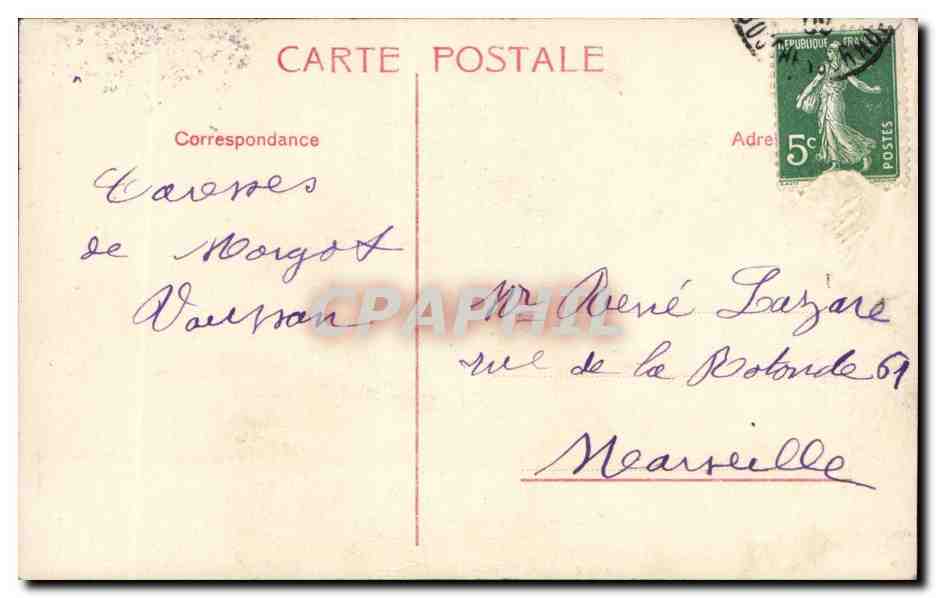 CARTE POSTALE
Correspondance
Adre
RÉPUBLIQUE FRA
5c
POSTES
Caresses
de Margot
Vaussan
CPAPHIL
Mr René Lazare
rue de la Rotonde 61
Marseille